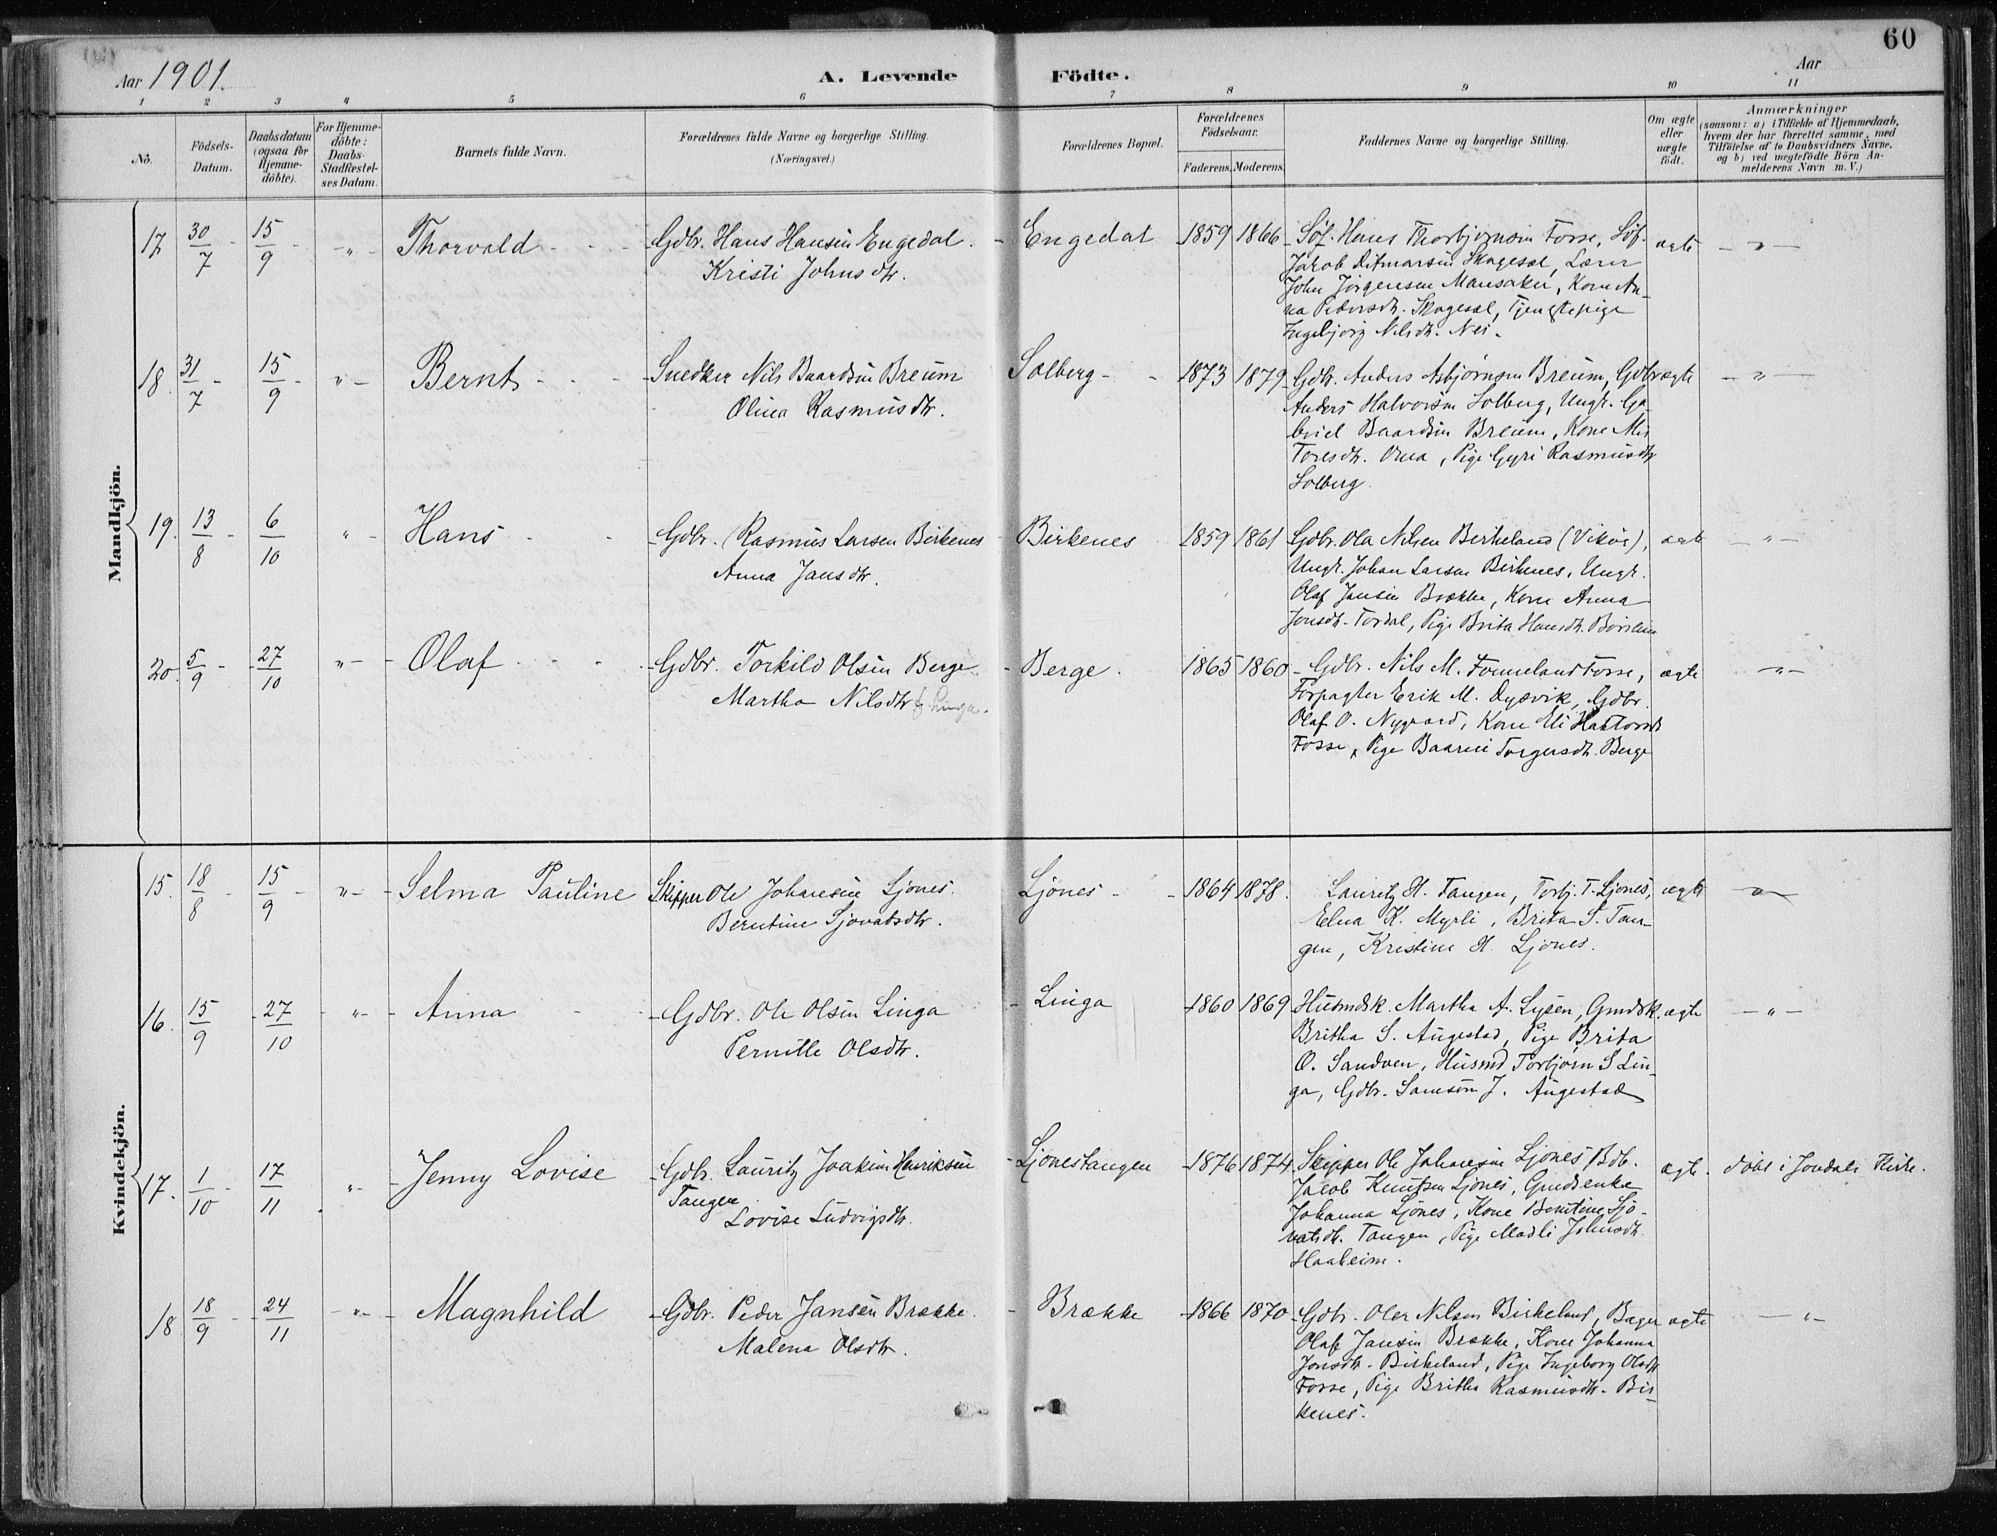 60
Aar 1901.
A. Levende Födte.
Aar
1 2 3 4 5 6 7 8 9 10 11
No.
Födsels-
Datum.
Daabsdatum
(ogsaa for
Hjemme-
döbte).
For Hjemme-
döbte:
Daabs-
Stadfæstel-
ses Datum.
Barnets fulde Navn.
Forældrenes fulde Navne og borgerlige Stilling.
(Næringsvei.)
Forældrenes Bopæl.
Forældrenes
Födselsaar.
Faderens. Moderens.
Faddernes Navne og borgerlige Stilling.
Om ægte
eller
uægte
födt.
Anmærkninger
(saasom: a) i Tilfælde af Hjemmedaab,
hvem der har forrettet samme, med
Tilföielse af to Daabsvidners Navne,
og b) ved uægtefödte Börn An-
melderens Navn m. V.)
Mandkjön.
17 30/7 - 15/9 - - " - Thorvald - Gdbr. Hans Hansen Engedal.
Kristi Johnsdtr.
Engedal 1859 1866 - Söf. Hans Thorbjørnsen Fosse, Söf.
Jakob Ditmarsen Skogesal, Lærer
John Jörgensen Mansaker, Kone An-
na Pedersdtr. Skogesal, Tjenestepige
Ingebjorg Nilsdtr. Nes.
ægte - " -
18. 31/7 - 15/9 - " - Bernt - Snedker Nils Baardsen Breum
Olina Rasmusdtr.
Solberg - 1873 1879 Gdbr. Anders Asbjørnsen Breum, Gdbr
Anders Halvorsen Solberg, Ungk. Ga-
briel Baardsen Breum, Kone
Toresdtr. , Pige Gyri Rasmusdtr
Solberg.
ægte - " -
19. 13/8 - 6/10 " - Hans - Gdbr. Rasmus Larsen Birkenes
Anna Jansdtr.
Birkenes 1859 1861 Gdbr. Ola Nilsen Berkeland (Vikör),
Ungk. Johan Larsen Birkenes, Ungk.
Olaf Jansen Brække, Kone Anna
Jonsdtr. Tordal, Pige Brita Hansdtr.
ægte - " -
20. 5/9 - 27/10 " - Olaf - Gdbr. Torkild Olsen Berge
Martha Nilsdtr f. Linga.
Berge. 1865 1860 - Gdbr. Nils M. Tommeland Fosse,
Forpagter Erik M. Dysvik, Gdbr.
Olaf O. Nygaard, Kone Eli
Fosse, Pige Baarni Torgersdtr. Berge
ægte - " -
Kvindekjön.
15. 18/8 - 15/9 - " - Selma Pauline Skipper Ole Johansen Ljones.
Berntine Sjovatsdtr.
Ljones - 1864 1878. Lauritz H. Tangen, Torbj. T. Ljones,
Elna K. Myrli, Brita S. Tan-
gen, Kristine H. Ljones.
ægte - " -
16. 15/9 - 27/10 - " - Anna - Gdbr. Ole Olsen Linga
Pernille Olsdtr.
Linga 1860 1869 Husmdsk. Martha A. Lysen, Gmdsk.
Britha S. Augestad, Pige Brita
O. Sandven, Husmd Torbjørn S Lin-
ga, Gdbr. Samson J. Augestad
ægte - " -
17. 1/10 - 17/11 " - Jenny Lovise - Gdbr. Lauritz Joakim Henriksen
Tangen
Lovise Ludvigsdtr.
Ljonestangen 1876 1874 Skipper Ole Johansen Ljones, Gdb.
Jacob Knutsen Ljones, Gmdsenke
Johanna Ljones, Kone Berntine Sjo-
vatsdtr. Tangen, Pige Madli Johnsdtr.
Haaheim.
ægte. döbt i Jondals Kirke.
18 18/9 - 24/11 - " - Magnhild - Gdbr. Peder Jansen Brække.
Malena Olsdtr.
Brække 1866 1870 - Gdbr. Oler Nilsen Birkeland, Bager
Olaf Jansen Brække, Kone Johanna
Jonsdtr. Birkeland, Pige Ingeborg Olsdtr
Fosse, Pige Britha Rasmusdtr. Bir-
kenes.
ægte - " -